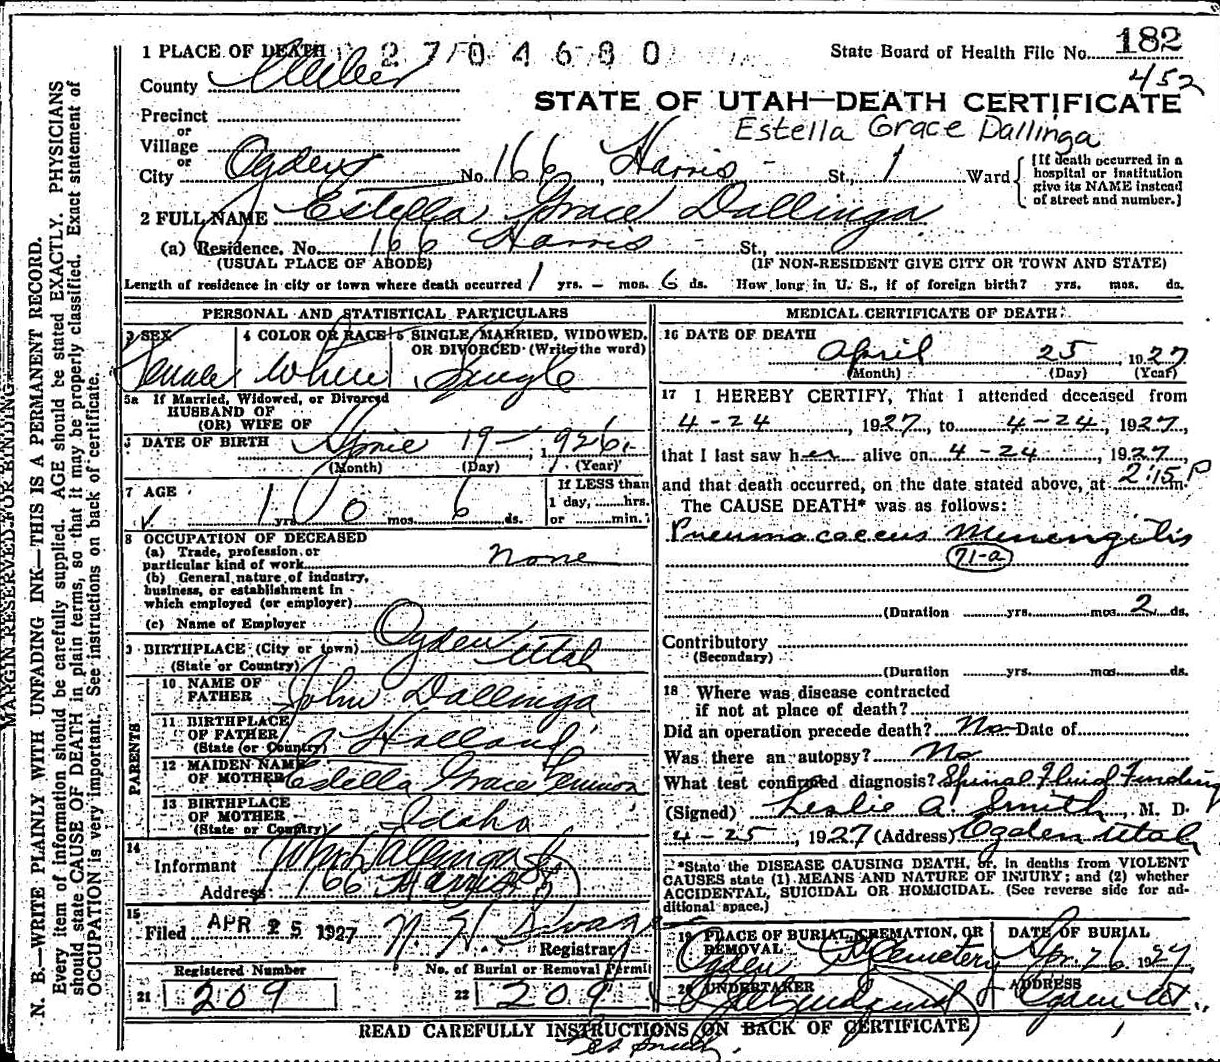 1 PLACE OF DEATH 2704680 State Board of Health File No. 182
County Weber 452
STATE OF UTAH—DEATH CERTIFICATE
Precinct
or
Estella Grace Dallinga
Village
or
City Ogden No. 166 Harris St., 1 Ward {If death occurred in a hospital or institution give its NAME instead of street and number.}
2 FULL NAME Estella Grace Dallinga
(a) Residence. No. 166 Harris St.,
(USUAL PLACE OF ABODE) (IF NON-RESIDENT GIVE CITY OR TOWN AND STATE)
Length of residence in city or town where death occurred 1 yrs. - mos. 6 ds. How long in U. S., if of foreign birth? yrs. mos. ds.
PERSONAL AND STATISTICAL PARTICULARS
3 SEX 4 COLOR OR RACE 5 SINGLE, MARRIED, WIDOWED, OR DIVORCED (Write the word)
Female White Single
5a If Married, Widowed, or Divorced
HUSBAND OF
(OR) WIFE OF
DATE OF BIRTH April 19 - 1926
(Month) (Day) (Year)
7 AGE 1 yrs 0 mos. 6 ds.
If LESS than
1 day, hrs.
or min.
8 OCCUPATION OF DECEASED
(a) Trade, profession, or
particular kind of work none
(b) General nature of industry,
business, or establishment in
which employed (or employer)
(c) Name of Employer
9 BIRTHPLACE (City or town) Ogden
(State or Country) Utah
PARENTS
10 NAME OF FATHER John Dallinga
11 BIRTHPLACE OF FATHER (State or Country) Holland
12 MAIDEN NAME OF MOTHER Estella Grace
13 BIRTHPLACE OF MOTHER (State or Country) Idaho
14 Informant Dallinga
Address 166 Harris
15 Filed APR 25 1927
Registrar
Registered Number No. of Burial or Removal Permit
21 209 22 209
MEDICAL CERTIFICATE OF DEATH
16 DATE OF DEATH
April 25 1927
(Month) (Day) (Year)
17 I HEREBY CERTIFY, That I attended deceased from
4-24, 1927, to 4-24, 1927,
that I last saw her alive on 4-24, 1927,
and that death occurred, on the date stated above, at 2:15 P m.
The CAUSE DEATH* was as follows:
Pneumococcus Meningitis
71-a
(Duration yrs. mos. 2 ds.
Contributory
(Secondary)
(Duration yrs. mos. ds.
18 Where was disease contracted
if not at place of death?
Did an operation precede death? No Date of
Was there an autopsy? No
What test confirmed diagnosis? Spinal Fluid Finding
(Signed) Leslie A. Smith, M. D.
4-25, 1927 (Address) Ogden Utah
*State the DISEASE CAUSING DEATH, or, in deaths from VIOLENT
CAUSES state (1) MEANS AND NATURE OF INJURY; and (2) whether
ACCIDENTAL, SUICIDAL OR HOMICIDAL. (See reverse side for ad-
ditional space.)
19 PLACE OF BURIAL, CREMATION, OR REMOVAL DATE OF BURIAL
Ogden City Cemetery Apr. 26 1927
20 UNDERTAKER ADDRESS
Ogden Ut.
READ CAREFULLY INSTRUCTIONS ON BACK OF CERTIFICATE
MARGIN RESERVED FOR BINDING
N. B.—WRITE PLAINLY WITH UNFADING INK—THIS IS A PERMANENT RECORD.
Every item of information should be carefully supplied. AGE should be stated EXACTLY. PHYSICIANS
should state CAUSE OF DEATH in plain terms, so that it may be properly classified. Exact statement of
OCCUPATION is very important. See instructions on back of certificate.